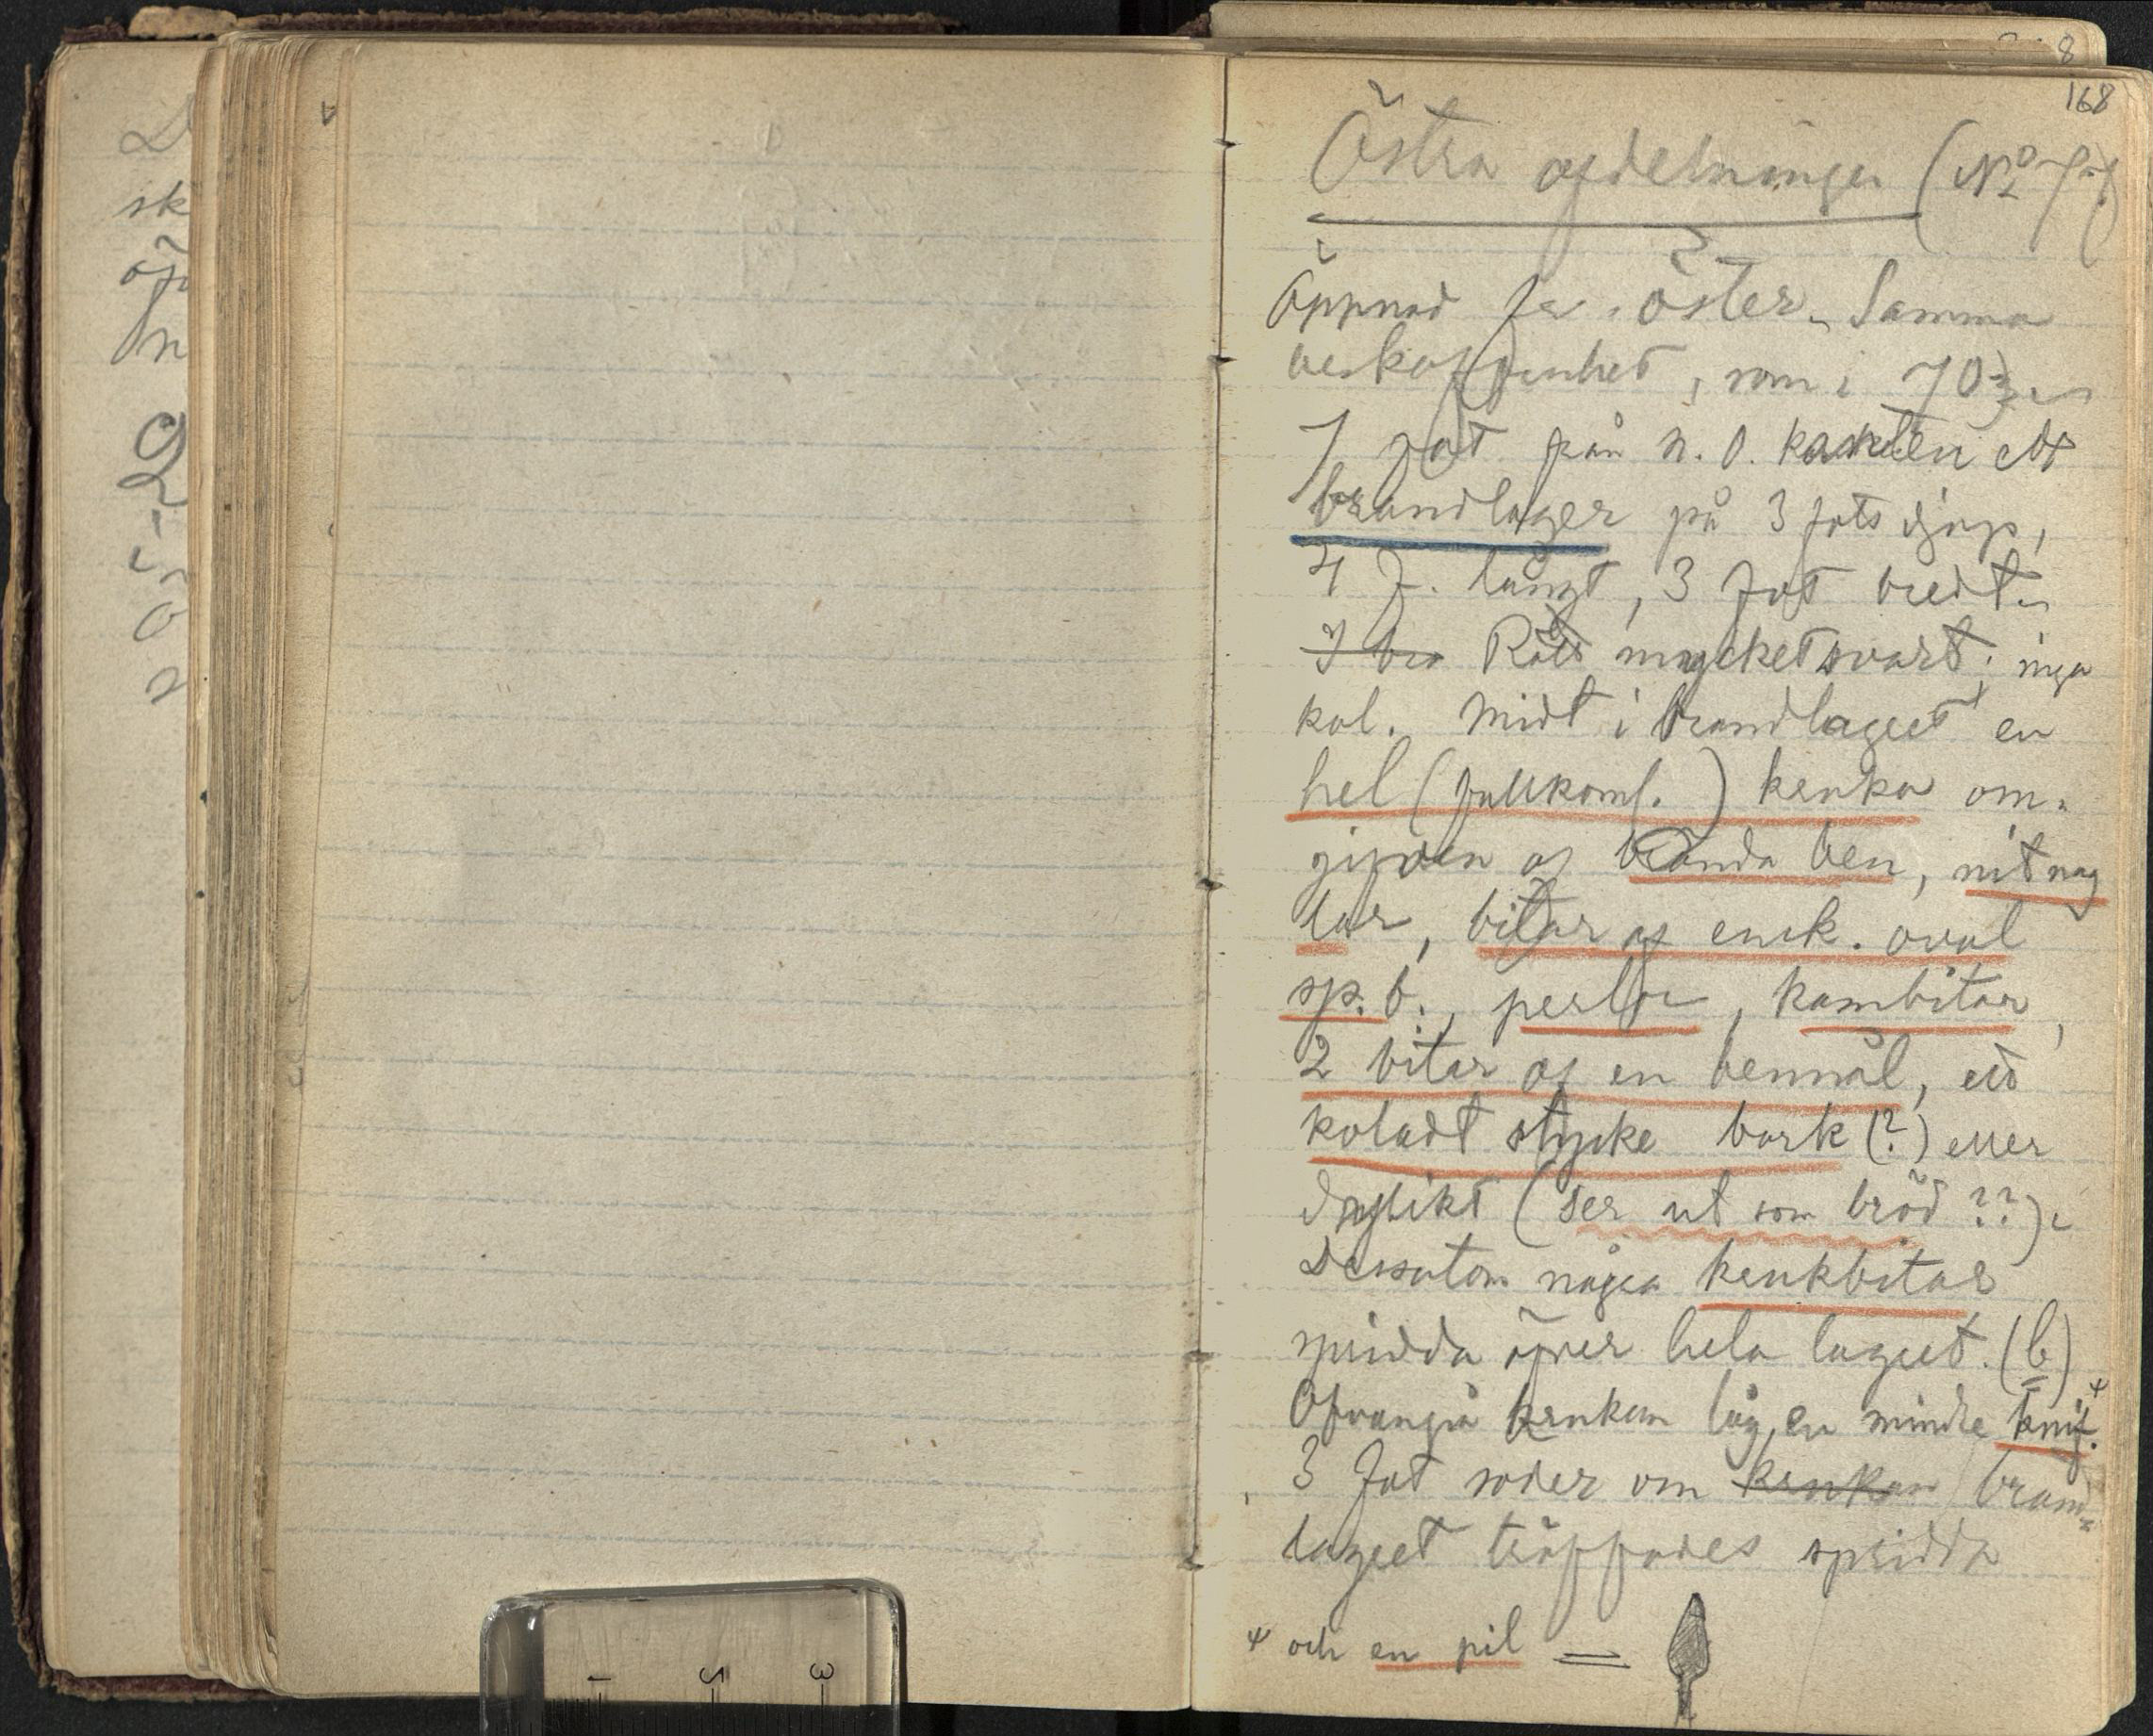 168
Östra afdelningen (No
Öppnad fr. öster. Samma
beskaffenhet, som i 70
7 fot från n. O. kanten ett
brandlager på 3 fots djup,
4 f. långt, 3 fot bredt.
3 bra Rätt mycket svart; inga
kol. Midt i brandlagret en
hel (fullkoml.) kruka om-
gifven af brända ben, nitnag
lar, bitar af enk. oval
sp. b., perlor, kambitar,
2 bitar af en bennål, ett
koladt stycke bark (?) eller
dylikt (ser ut som bröd ??).
Dessutom några krukbitar
spridda öfver hela lagret. (b)
Ofvanpå krukan låg en mindre knif.+
3 fot söder om krukan brand-
lagret träffades spridda
+ och en pil =